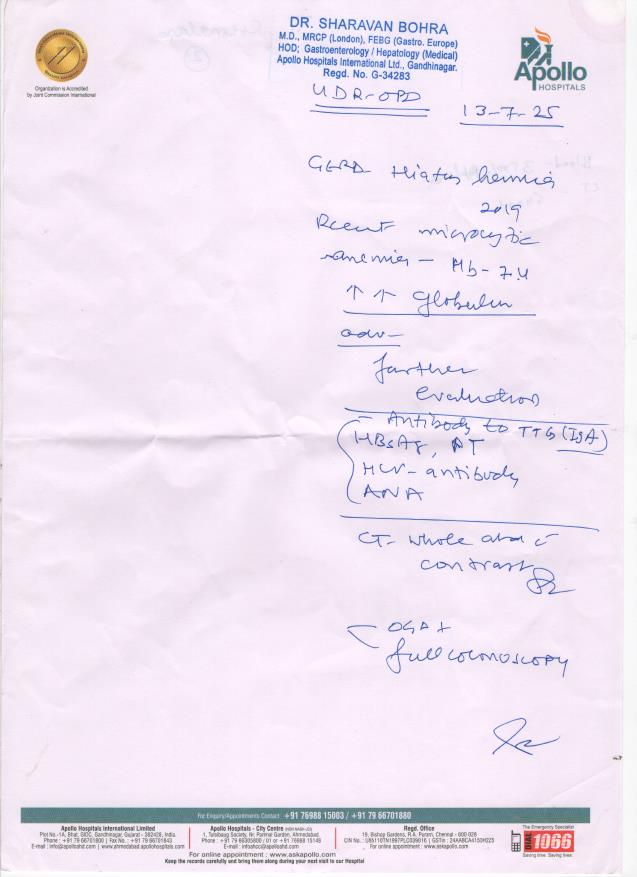 DR. SHARAVAN BOHRA
M.D., MRCP (London), FEBG (Gastro. Europe)
HOD; Gastroenterology / Hepatology (Medical)
Apollo Hospitals International Ltd., Gandhinagar.
Regd. No. G-34283
Organization is Accredited
by Joint Commission International
Apollo
HOSPITALS
OPD
13-7-25
GERD Hiatus hernia
2019
Recent microcytic
anemia - Hb- 7.4
↑ ↑ Globulin
adv-
further
evaluation
- Antibody to TTG (IgA)
HBsAg, PT
HCV- antibody
ANA
CT- whole abd c̄
contrast
OGD +
full colonoscopy
For Enquiry/Appointments Contact : +91 76988 15003 / +91 79 66701880
Apollo Hospitals International Limited
Plot No.-1A, Bhat, GIDC, Gandhinagar, Gujarat - 382428, India.
Phone : +91 79 66701800 | Fax No. : +91 79 66701843
E-mail : info@apolloahd.com | www.ahmedabad.apollohospitals.com
Apollo Hospitals - City Centre
1, Tulsibaug Society, Nr. Parimal Garden, Ahmedabad.
Phone : +91 79 66305800 / 01 or +91 76988 15145
Regd. Office
19, Bishop Gardens, R.A. Puram, Chennai - 600 028
For online appointment : www.askapollo.com
The Emergency Specialist
DIAL 1066
Saving time. Saving lives.
For online appointment : www.askapollo.com
Keep the records carefully and bring them along during your next visit to our Hospital